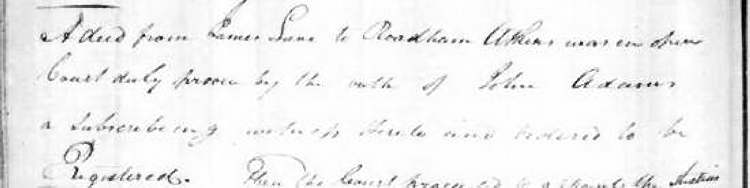 A deed from James Lane to Roadham Atkins was in open
Court duly proven by the oath of John Adams
a Subscribeing witness thereto and ordered to be
Registered. Then the Court proceeded to the Justices